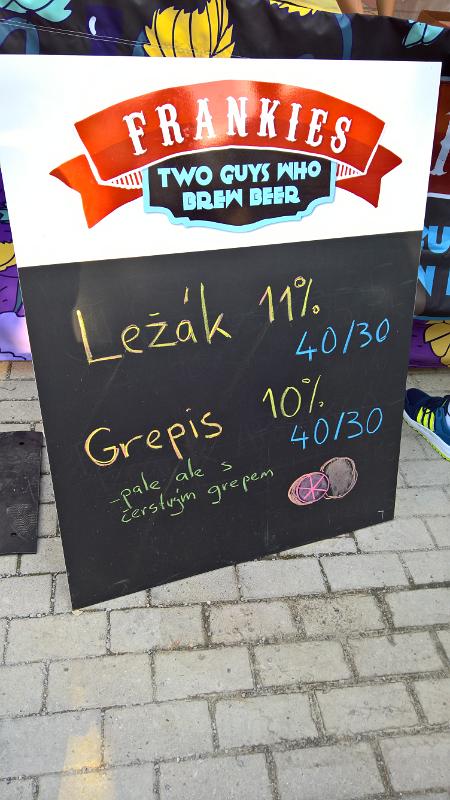 FRANKIES
TWO GUYS WHO
BREW BEER
Ležák 11%
40/30
Grepis 10%
40/30
-pale ale s
čerstvým grepem